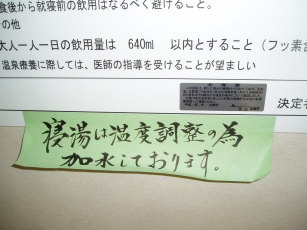 食後から就寝前の飲用はなるべく避けること。
の他
大人一人一日の飲用量は 640ml 以内とすること（フッ素
温泉療養に際しては、医師の指導を受けることが望ましい
決定者
寝湯は温度調整の為
加水しております。